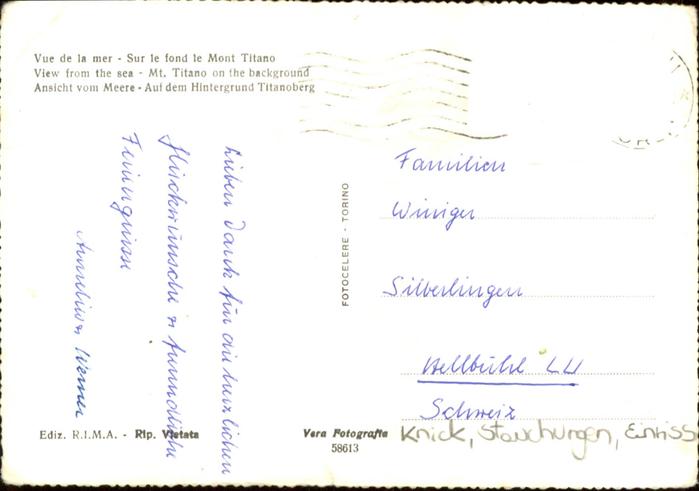 Vue de la mer - Sur le fond le Mont Titano
View from the sea - Mt. Titano on the background
Ansicht vom Meere - Auf dem Hintergrund Titanoberg
Lieben Dank für die herzlichen
Glückwünsche &
Feriengrüsse
Werner
FOTOCELERE - TORINO
Familien
Winiger
Silberlingen
Hellbühl LU
Schweiz
Ediz. R.I.M.A. - Rip. Vietata
Vera Fotografia
58613
Knick, Stauchungen, Einriss